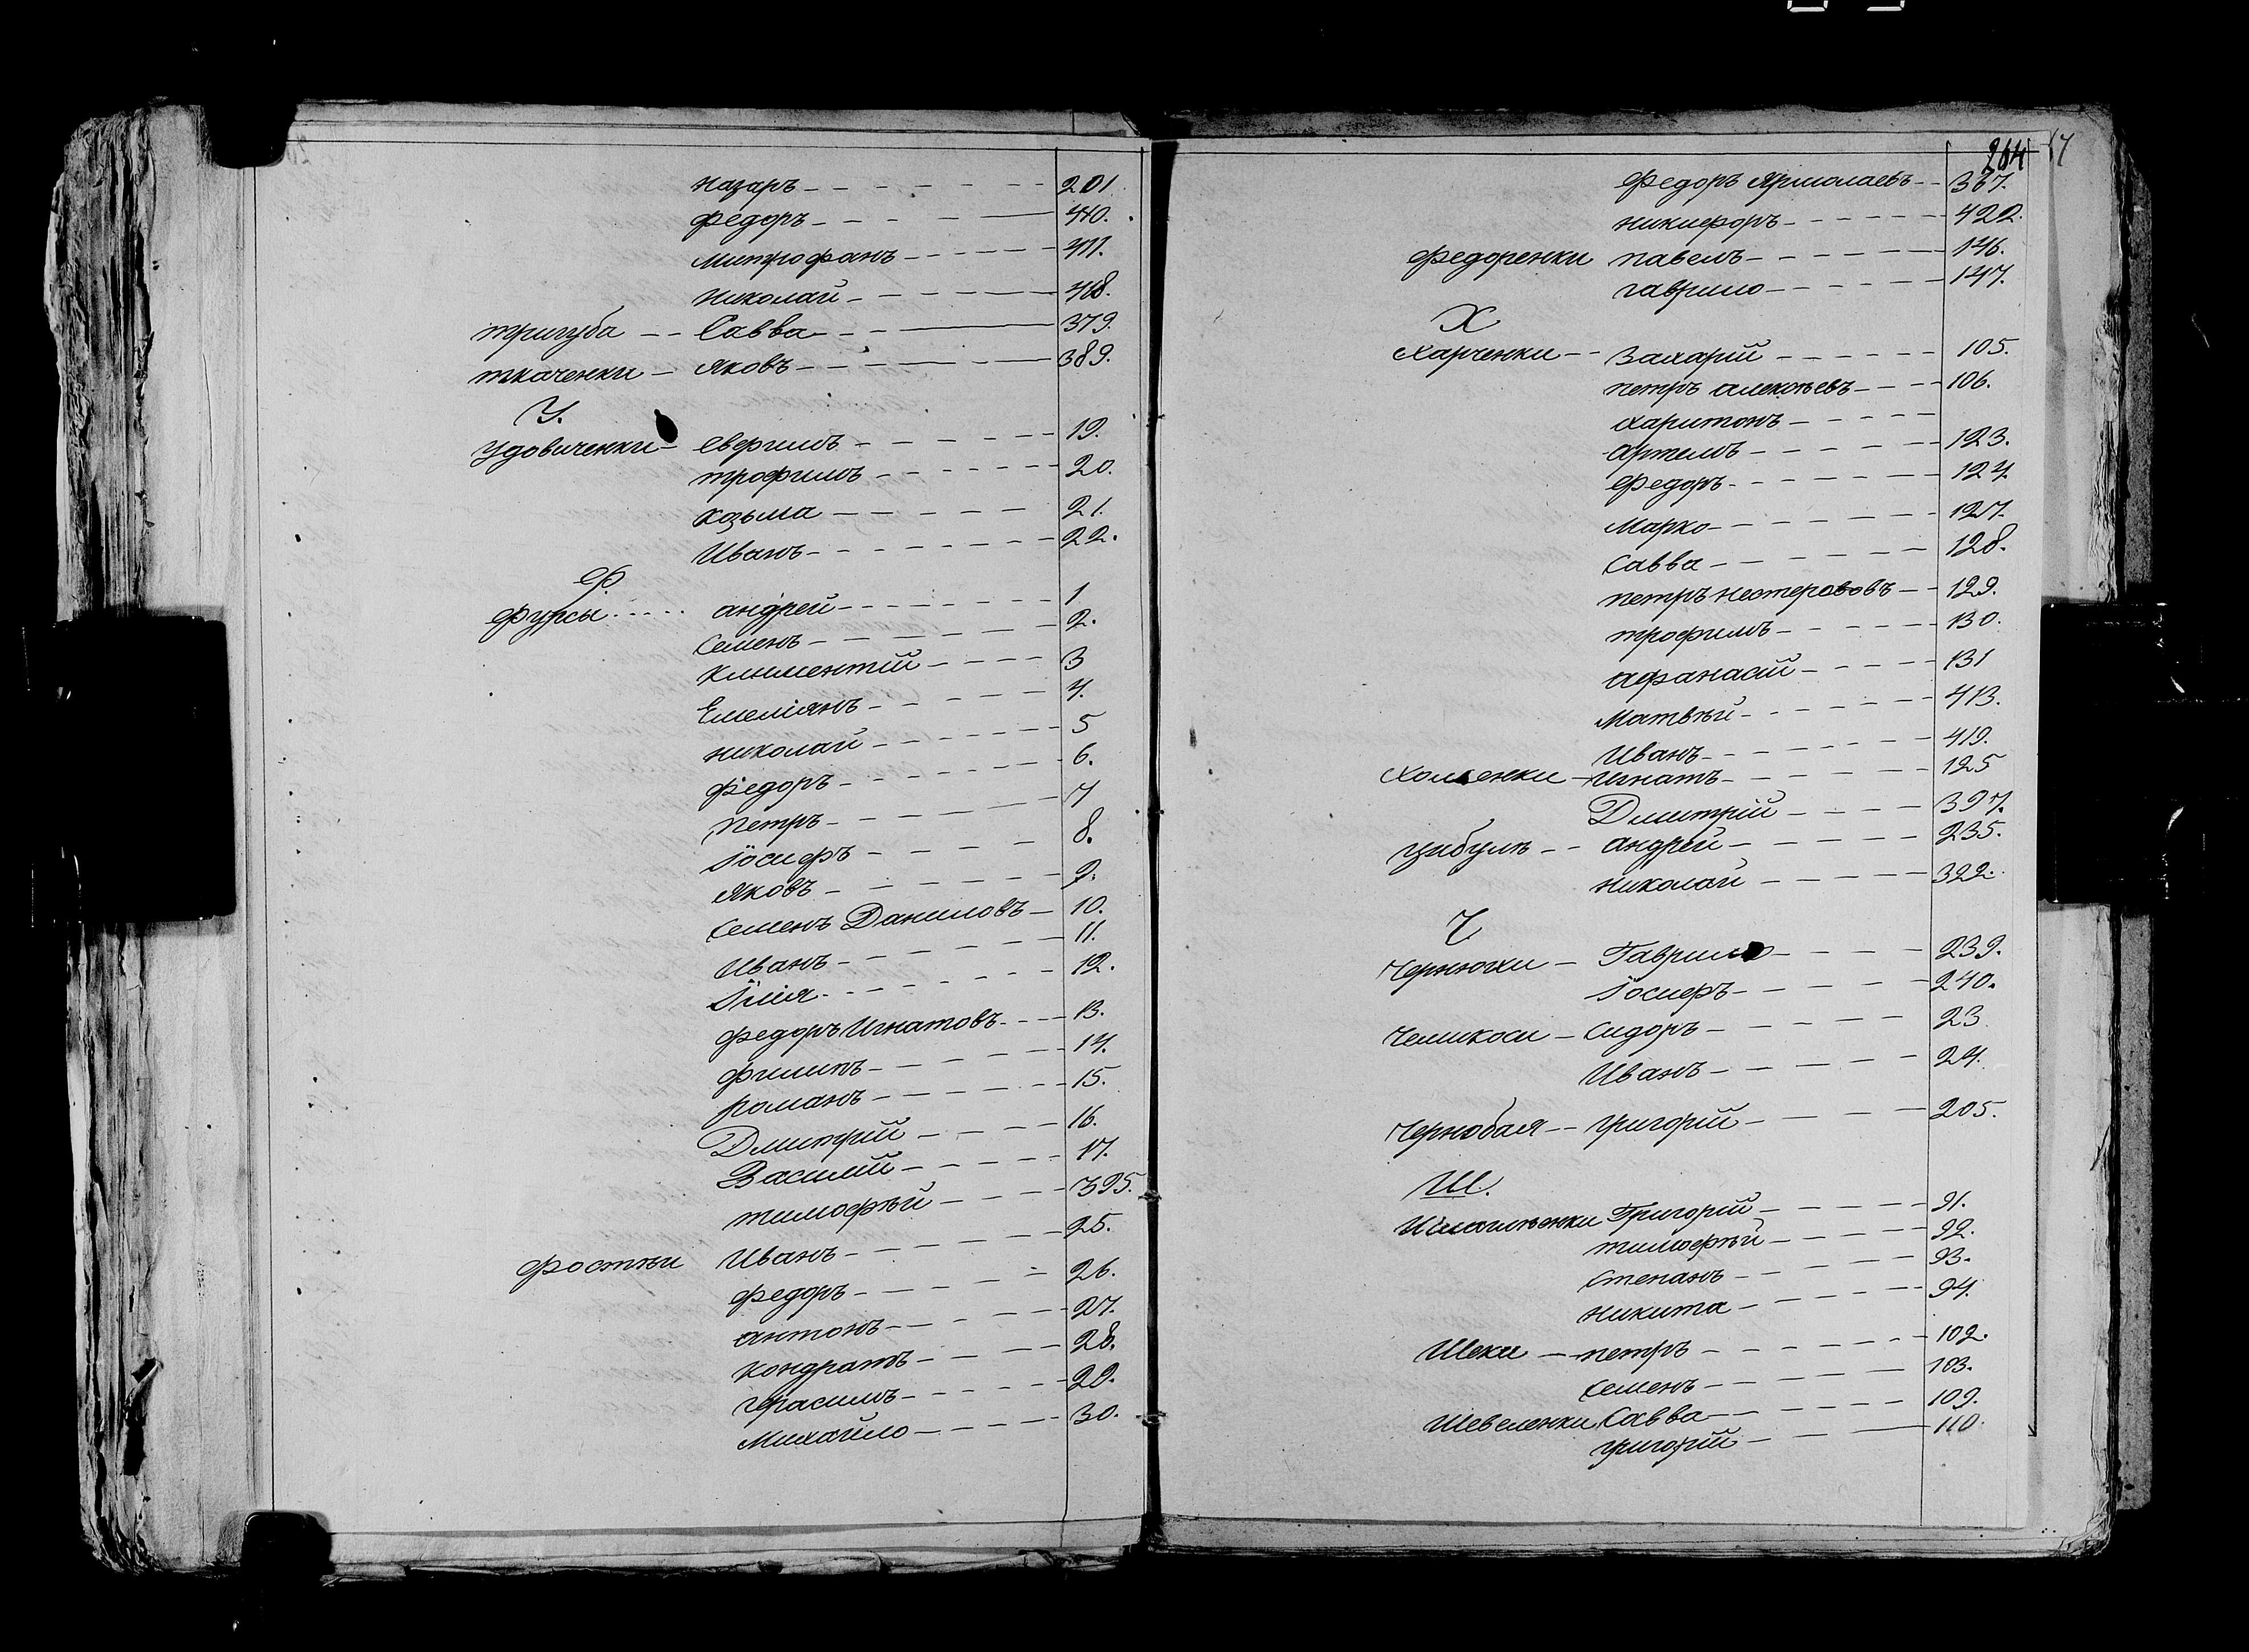 Назаръ 201.
Федоръ 440.
Митрофанъ 411.
Николай 448.
Тригуба Савва 379.
Ткаченки Яковъ 389.
У.
Удовиченки Евфимъ 19.
Трофимъ 20.
Козьма 21.
Иванъ 22.
Ф.
Фурсы андрей 1
Семенъ 2.
Климентій 3
Емеліянъ 4.
Николай 5
Федоръ 6.
Петръ 7
Іосифъ 8.
Яковъ 9.
Семенъ Даниловъ 10.
Иванъ 11.
Ілія 12.
Федоръ Игнатовъ 13.
Филипъ 14.
Романъ 15.
Дмитрій 16.
Василій 17.
Тимофѣй 395.
Фостѣи Иванъ 25.
Федоръ 26.
антонъ 27.
Кондратъ 28.
Герасимъ 29.
Михайло 30.
264
17
Федоръ Ярмолаевъ 367.
Никифоръ 422.
Федоренки Павелъ 146.
Гаврило 147.
Х
Харченки Захарій 105.
Петръ алексѣевъ 106.
Харитонъ
Артемъ 123.
Федоръ 124.
Марко 127.
Савва 128.
Петръ Нестерововъ 129.
Трофимъ 130.
афанасій 131
Матвѣй 413.
Иванъ 419.
Игнатъ 125
Дмитрій 397.
Цибулѣ андрей 235.
Николай 322.
Ч
Гаврило 239.
Іосифъ 240.
Чемикоси Сидоръ 23
Иванъ 24.
Чернобая Григорій 205.
Ш.
Григорій 91.
Тимофѣй 92.
Степанъ 93.
Никита 94.
Шеки Петръ 102.
Семенъ 103.
Шевеленки Савва 109.
Григорій 110.